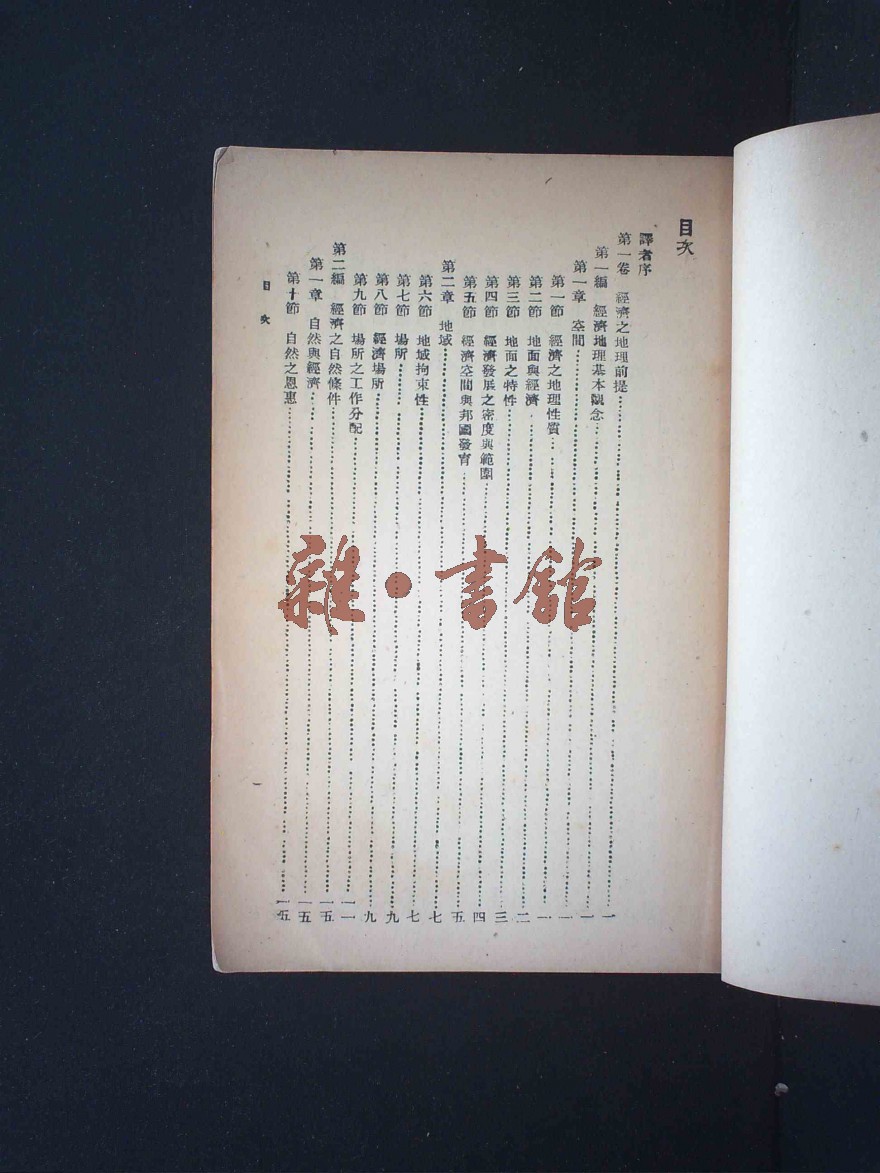 目次
譯者序
第一卷　經濟之地理前提……一
第一編　經濟地理基本觀念……一
第一章　空間……一
第一節　經濟之地理性質……一
第二節　地面與經濟……二
第三節　地面之特性……三
第四節　經濟發展之密度與範圍……四
第五節　經濟空間與邦國發育……五
第二章　地域……七
第六節　地域拘束性……七
第七節　場所……九
第八節　經濟場所……九
第九節　場所之工作分配……一一
第二編　經濟之自然條件……一五
第一章　自然與經濟……一五
第十節　自然之恩惠……一五
目次
雜·書館